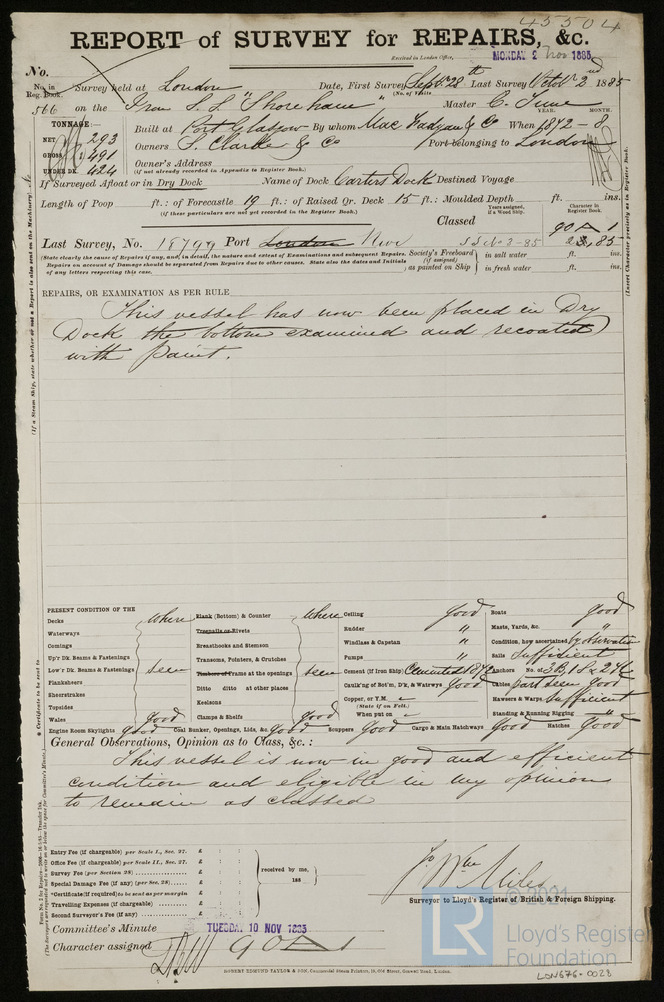 45504
REPORT of SURVEY for REPAIRS, &c.
Received in London Office,
MONDAY 2 Nov 1885
No.
No. in Reg. Book.
Survey held at London Date, First Survey Septr 28th Last Survey Octobr 2nd 1885
(No. of Visits
566 on the Iron S.S. "Shoreham" Master C. June
YEAR. MONTH.
TONNAGE:—
NET 293
GROSS 491
UNDER DK. 424
Built at Port Glasgow By whom Mac Fadyan & Co When 1872 - 8
Owners S. Clarke & Co Port belonging to London
Owner's Address
(if not already recorded in Appendix to Register Book.)
If Surveyed Afloat or in Dry Dock Name of Dock Carters Dock Destined Voyage
Length of Poop ft.: of Forecastle 19 ft.: of Raised Qr. Deck 15 ft.: Moulded Depth ft. ins.
(if these particulars are not yet recorded in the Register Book.)
Years assigned, if a Wood Ship.
Character in Register Book.
Classed 90 A 1
Last Survey, No. 18799 Port London Nwc SS No 3-85 2,85
(State clearly the cause of Repairs if any, and, in detail, the nature and extent of Examinations and subsequent Repairs.
Repairs on account of Damage should be separated from Repairs due to other causes. State also the dates and Initials
of any letters respecting this case.
Society's Freeboard (if assigned) as painted on Ship
in salt water ft. ins.
in fresh water ft. ins.
REPAIRS, OR EXAMINATION AS PER RULE
This vessel has now been placed in Dry
Dock the bottom examined and recoated
with paint.
PRESENT CONDITION OF THE
Decks where
Waterways
Comings
Up'r Dk. Beams & Fastenings
Low'r Dk. Beams & Fastenings seen
Plansheers
Sheerstrakes
Topsides
Wales good
Engine Room Skylights good
Plank (Bottom) & Counter where
Treenails or Rivets
Breasthooks and Stemson
Transoms, Pointers, & Crutches
Timbers of Frame at the openings seen
Ditto ditto at other places
Keelsons
Clamps & Shelfs good
Coal Bunker, Openings, Lids, &c. good
Ceiling good
Rudder "
Windlass & Capstan "
Pumps "
Cement (If Iron Ship) Cemented
Caulk'ng of Bot'm, D'k, & Watrwys good
Copper, or Y.M.
(State if on Felt.)
When put on
Scuppers good
Cargo & Main Hatchways good
Boats good
Masts, Yards, &c. "
Condition, how ascertained by observation
Sails Sufficient
Anchors No. of 3B, 1S & 2K
Cables part seen good
Hawsers & Warps Sufficient
Standing & Running Rigging "
Hatches good
General Observations, Opinion as to Class, &c.:
This vessel is now in good and efficient
condition and eligible in my opinion
to remain as classed
Entry Fee (if chargeable) per Scale I., Sec. 27. £ : :
Office Fee (if chargeable) per Scale II., Sec. 27. £ : :
Survey Fee (per Section 28) £ : :
Special Damage Fee (if any) (per Sec. 28) £ : :
*Certificate (if required) to be sent as per margin
Travelling Expenses (if chargeable) £ : :
Second Surveyor's Fee (if any) £ : :
received by me,
188
Jo Wm Miles
Surveyor to Lloyd's Register of British & Foreign Shipping.
Committee's Minute TUESDAY. 10 NOV 1885
Character assigned 90 A 1
ROBERT EDMUND TAYLOR & SON, Commercial Steam Printers, 19, Old Street, Goswell Road, London.
LR
© 2021
Lloyd's Register
Foundation
LON676-0028